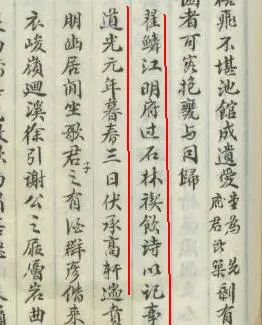 飛不堪池館成遺愛堂為先府君所築剩有
者可容抱甕與同歸
鱗江明府过石林稧飲詩以記事
道光元年暮春三日伏承高軒過賁
朋幽居閒坐歌君子之有酒群彥偕来
衣峻嶺迴溪徐引謝公之屐層岩曲